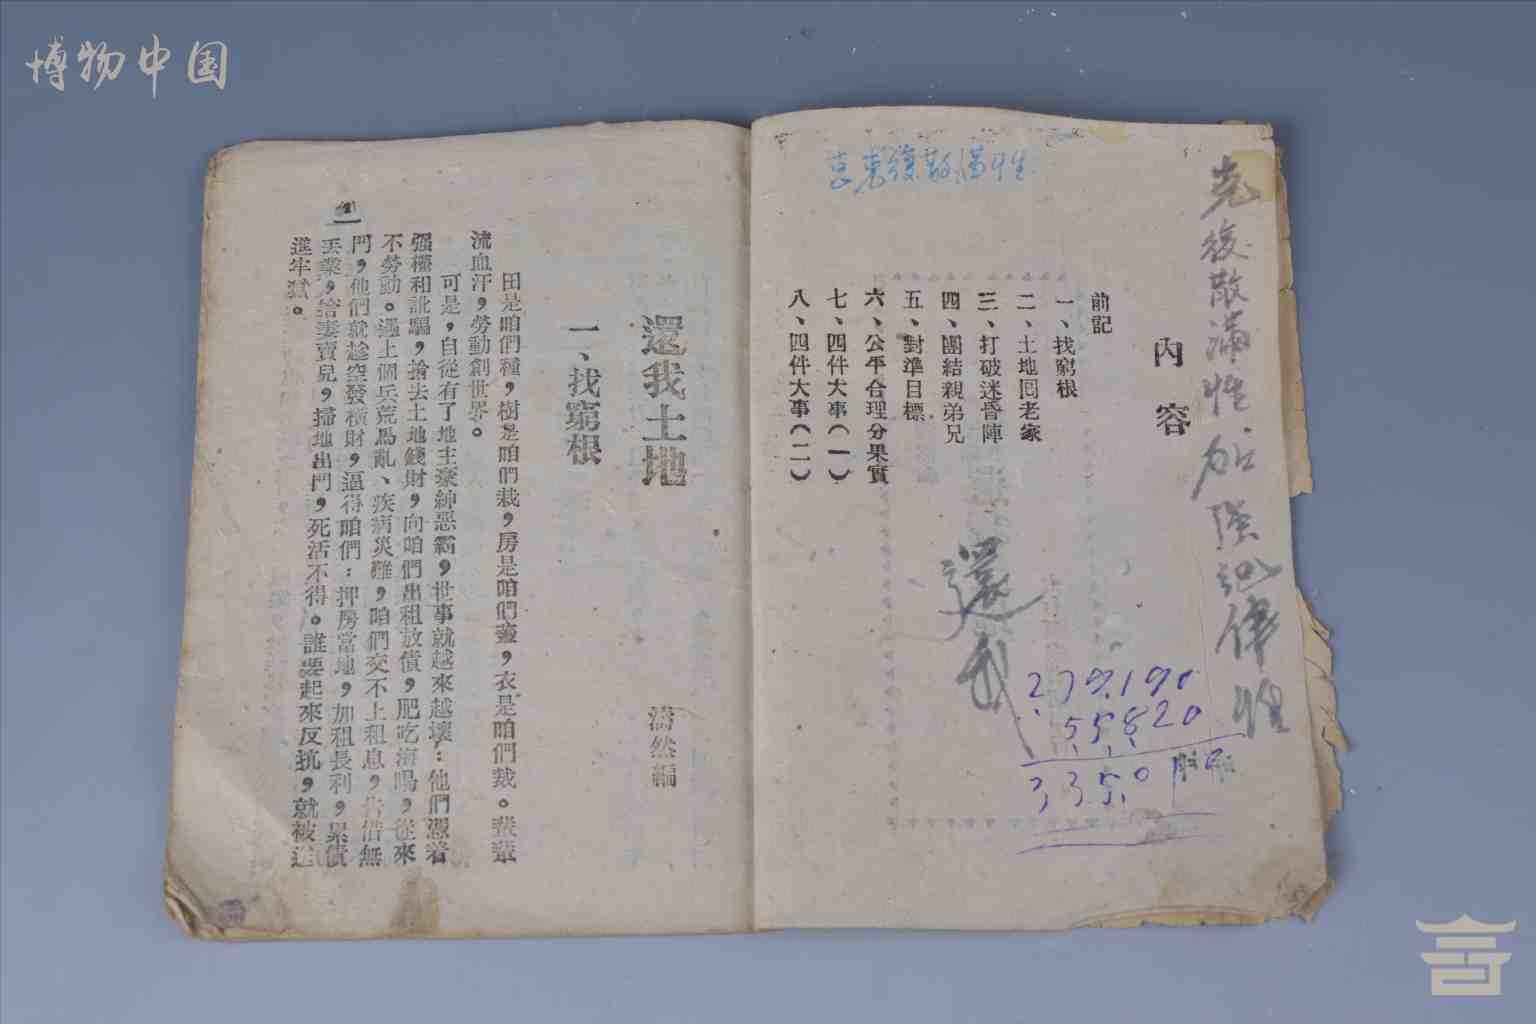 博物中国
克復散漫性加強紀律性
內容
前記
一、找窮根
二、土地回老家
三、打破迷昏陣
四、團結親弟兄
五、對準目標
六、公平合理分果實
七、四件大事(一)
八、四件大事(二)
還我
279190
55820
33501
還我土地
濤然編
一、找窮根
田是咱們種，樹是咱們栽，房是咱們蓋，衣是咱們裁。輩輩
流血汗，勞動創世界。
可是，自從有了地主豪紳惡霸，世事就越來越壞：他們憑着
强權和訛騙，搶去土地錢財，向咱們出租放債，肥吃海喝，從來
不勞動。遇上個兵荒馬亂、疾病災難，咱們交不上租息，告借無
門，他們就趁空發橫財，逼得咱們：押房當地，加租長利，累債
丟業，捨妻賣兒，掃地出門，死活不得。誰要起來反抗，就被送
進牢獄。